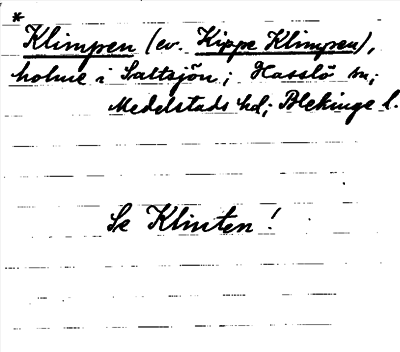 *
Klimpen (ev. Kippe Klimpen),
holme i Saltsjön; Hasslö sn;
Medelstads hd; Blekinge l.
Se Klinten!